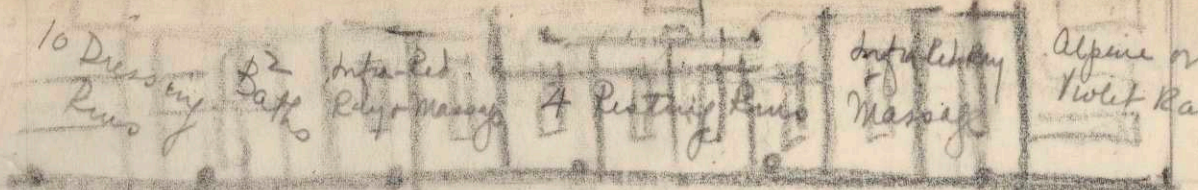 10 Dressing
Rms
2
Baths
Infra-Red
Ray & Massage
4 Resting Rms
Infra Red Ray
&
Massage
Alpine or
Violet Ra